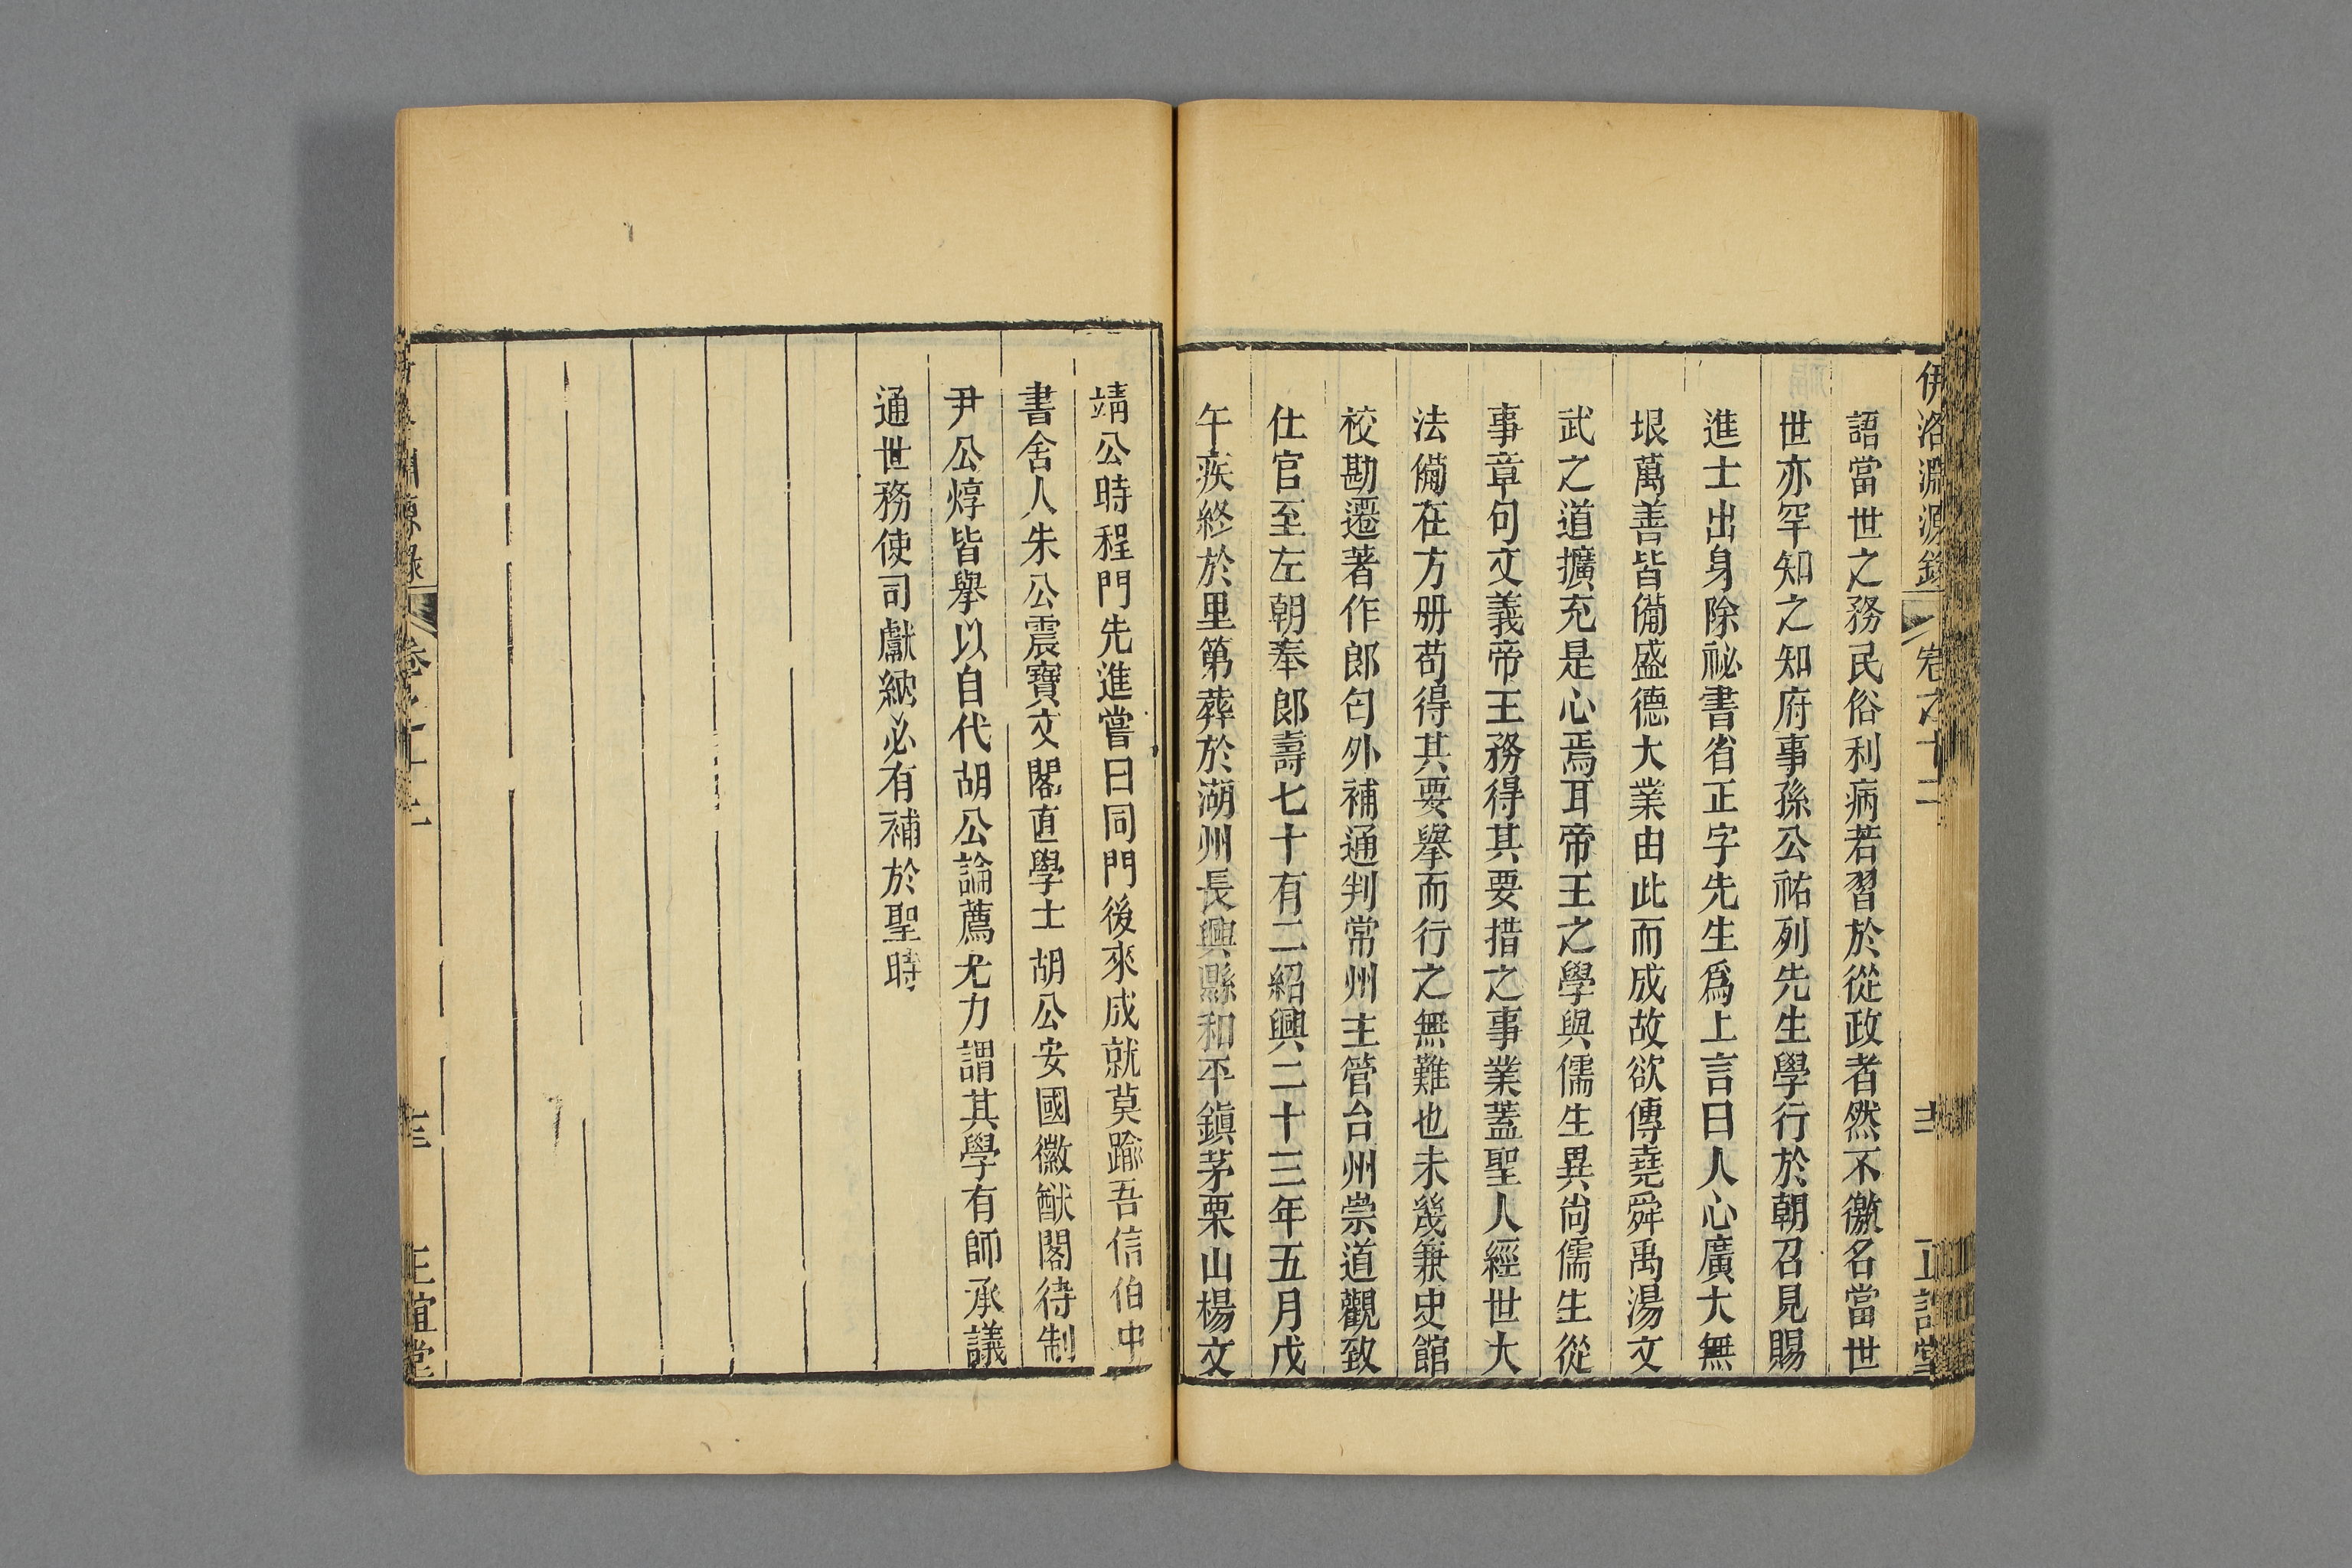 伊洛淵源錄 卷之十二 十二 正誼堂
語當世之務民俗利病若習於從政者然不徼名當世
世亦罕知之知府事孫公祐列先生學行於朝召見賜
進士出身除祕書省正字先生爲上言曰人心廣大無
垠萬善皆備盛德大業由此而成故欲傳堯舜禹湯文
武之道擴充是心焉耳帝王之學與儒生異尚儒生從
事章句文義帝王務得其要措之事業蓋聖人經世大
法備在方册苟得其要舉而行之無難也未幾兼史館
校勘遷著作郎匄外補通判常州主管台州崇道觀致
仕官至左朝奉郎壽七十有二紹興二十三年五月戊
午疾終於里第葬於湖州長興縣和平鎭茅栗山楊文
靖公時程門先進嘗曰同門後來成就莫踰吾信伯中
書舍人朱公震寶文閣直學士胡公安國徽猷閣待制
尹公焞皆舉以自代胡公論薦尤力謂其學有師承議
通世務使司獻納必有補於聖時
淵源錄 卷之十二 正誼堂